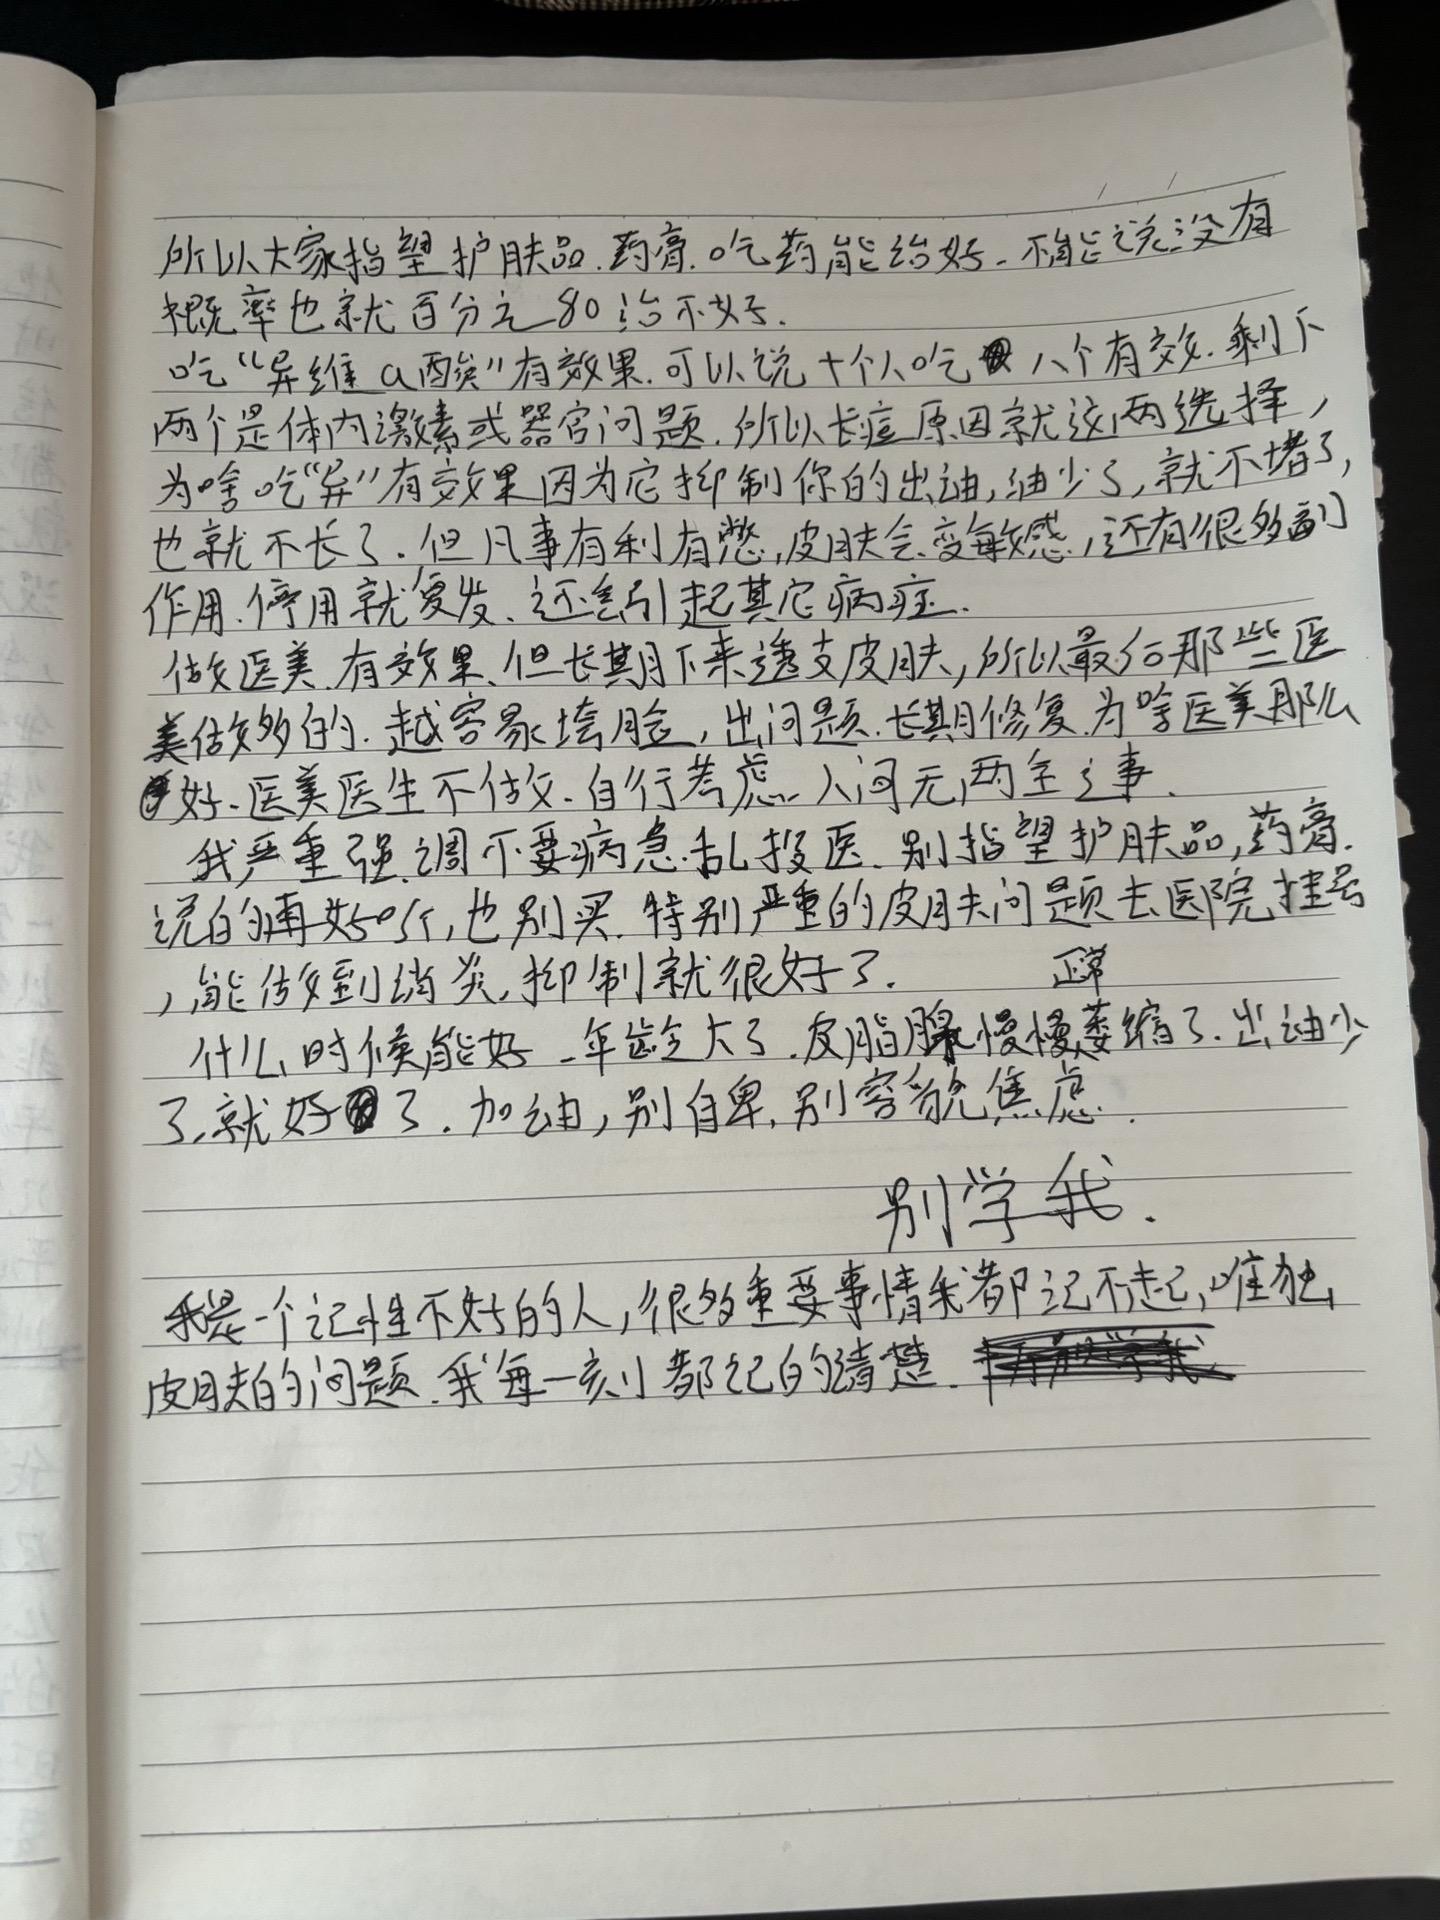 所以大家指望护肤品.药膏.吃药能治好.不能说没有
概率也就百分之80治不好.
吃“异维a酸”有效果.可以说十个人吃 八个有效.剩下
两个是体内激素或器官问题.所以长痘原因就这两选择,
为啥吃“异”有效果因为它抑制你的出油,油少了,就不堵了,
也就不长了.但凡事有利有憋,皮肤会变敏感,还有很多副
作用.停用就复发.还会引起其它病症.
做医美.有效果.但长期下来透支皮肤,所以最后那些医
美做多的.越容易垮脸,出问题.长期修复.为啥医美那么
好.医美医生不做.自行考虑.人间无两全之事.
我严重强调不要病急乱投医.别指望护肤品,药膏.
说的再好,也别买.特别严重的皮肤问题去医院挂号
,能做到消炎,抑制就很好了.
正常
什么时候能好.年龄大了.皮脂腺慢慢萎缩了.出油少
了.就好了.加油,别自卑.别容貌焦虑.
别学我.
我是一个记性不好的人,很多重要事情我都记不起,唯独
皮肤的问题.我每一刻都记的清楚.